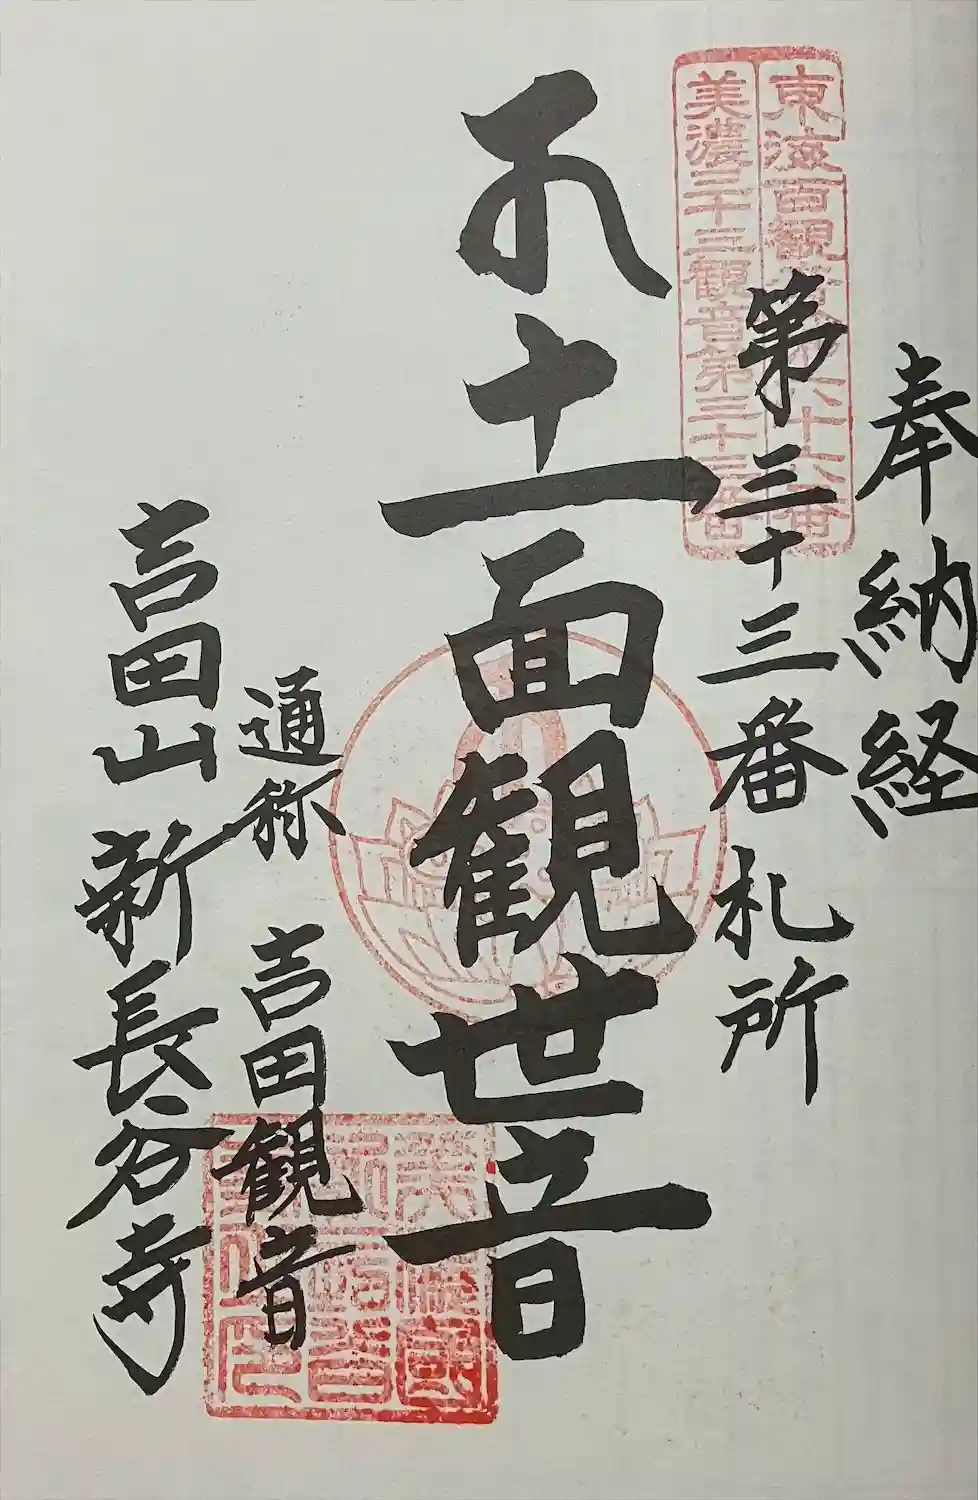 奉納経
東海百観音第六十六番
美濃三十三観音第三十三番
第三十三番札所
十一面観世音
通称 吉田観音
吉田山 新長谷寺